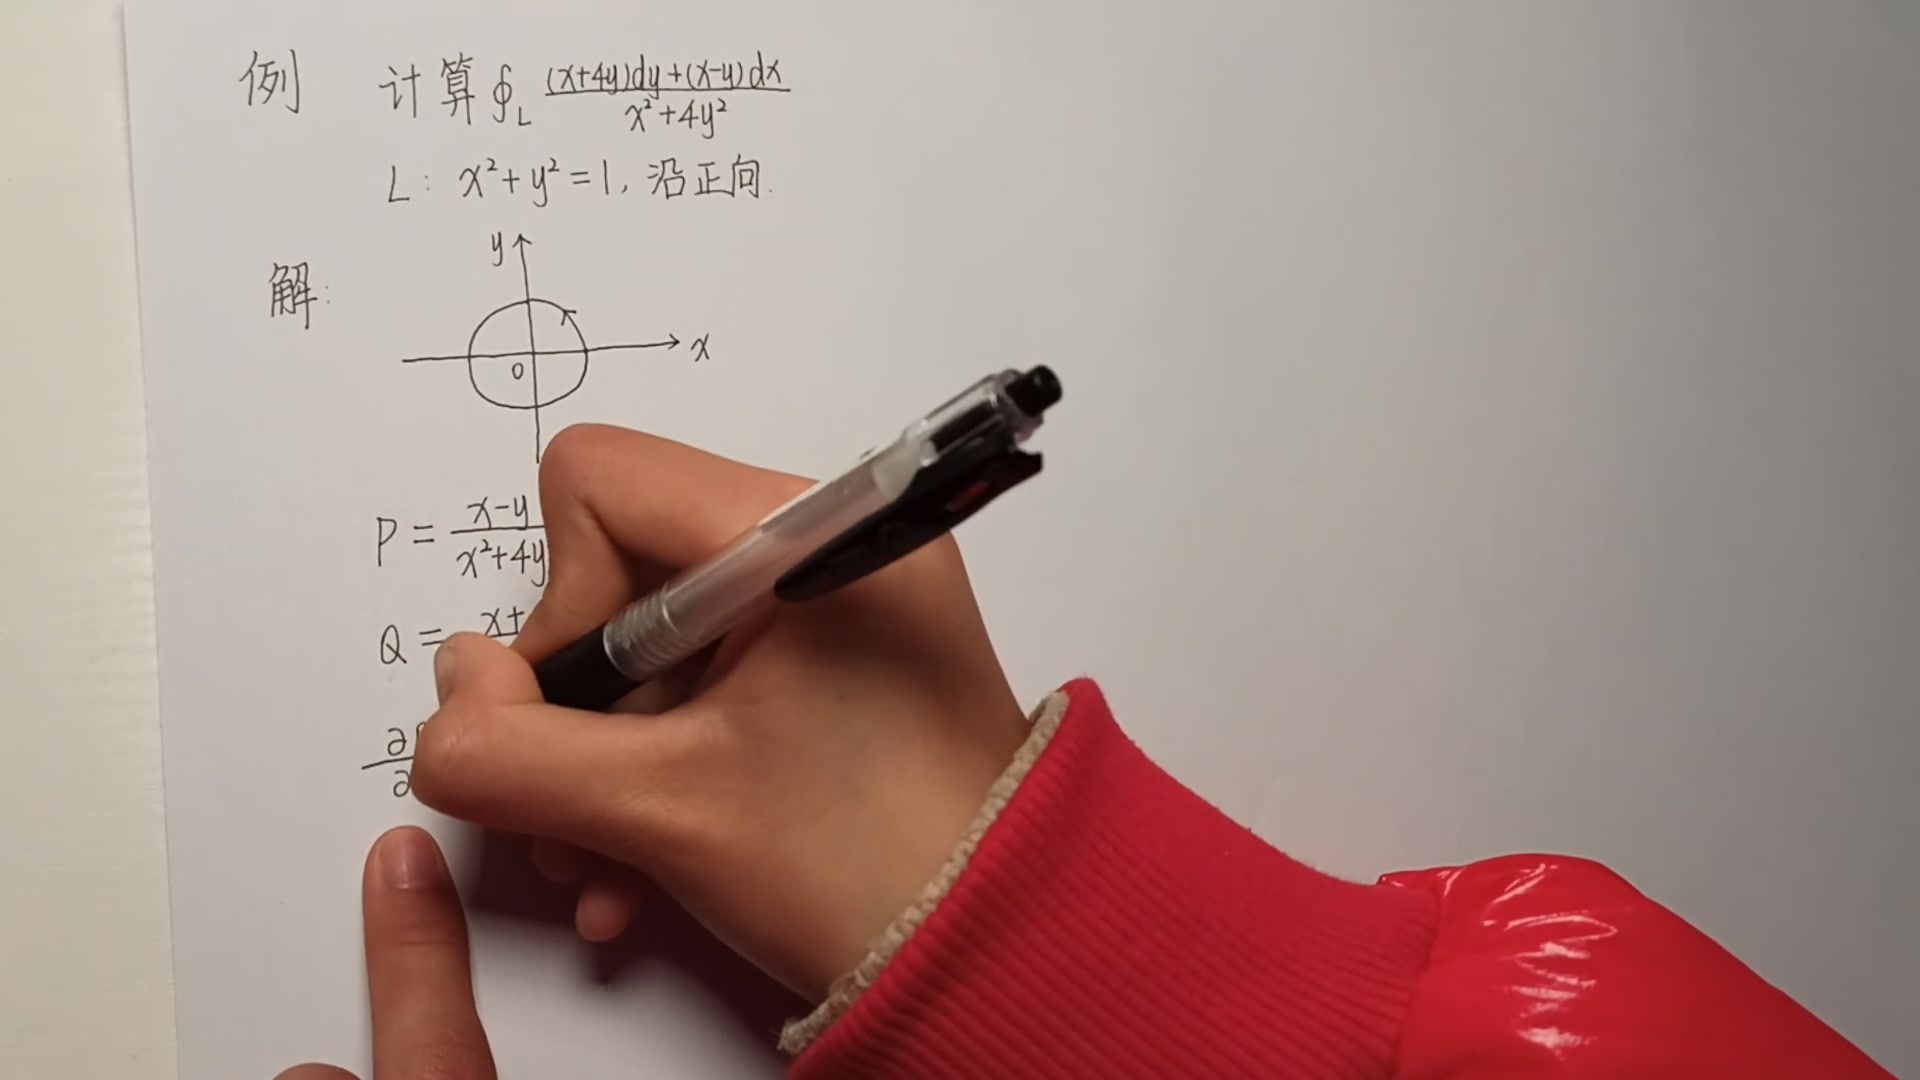 例 计算 ∮_L ((x+4y)dy+(x-y)dx)/(x²+4y²)
L: x²+y²=1, 沿正向.
解:
y
x
0
P = (x-y)/(x²+4y
Q = x+
∂
∂